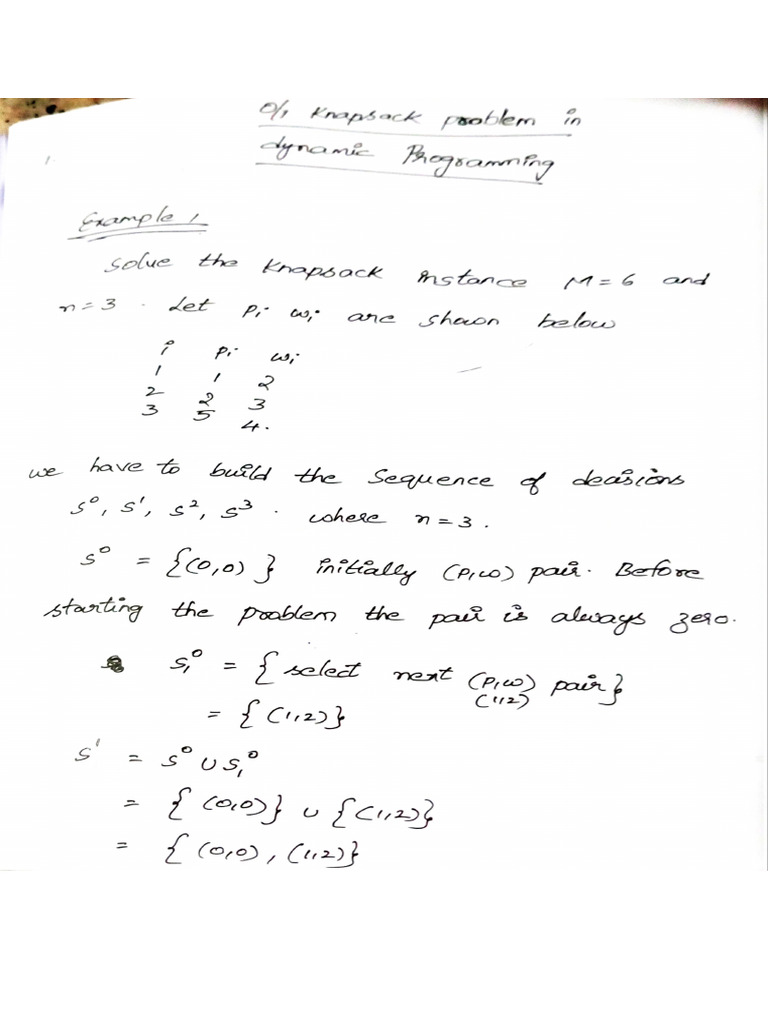 0/1 Knapsack problem in
dynamic Programming
Example 1
Solve the Knapsack instance M = 6 and
n = 3 . Let pi wi are shown below
i pi wi
1 1 2
2 2 3
3 5 4.
we have to build the Sequence of decisions
S⁰, S¹, S², S³ . where n = 3 .
S⁰ = {(0,0)} initially (P,w) pair. Before
starting the problem the pair is always zero.
S₁⁰ = { select next (P,w) pair}
(1,2)
= { (1,2)}
S¹ = S⁰ ∪ S₁⁰
= { (0,0)} ∪ {(1,2)}
= { (0,0) , (1,2)}